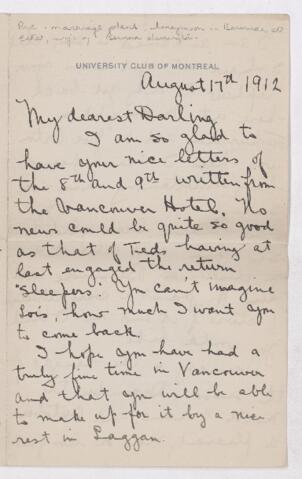 Re - marriage plans - honeymoon in
UNIVERSITY CLUB OF MONTREAL
August 17th 1912
My dearest Darling
I am so glad to
have your nice letters of
the 8th and 9th written from
the Vancouver Hotel. No
news could be quite so good
as that of Teds having at
last engaged the return
"sleepers". You can't imagine
Lois, how much I want you
to come back.
I hope you have had a
truly fine time in Vancouver
and that you will be able
to make up for it by a nice
rest in Laggan.